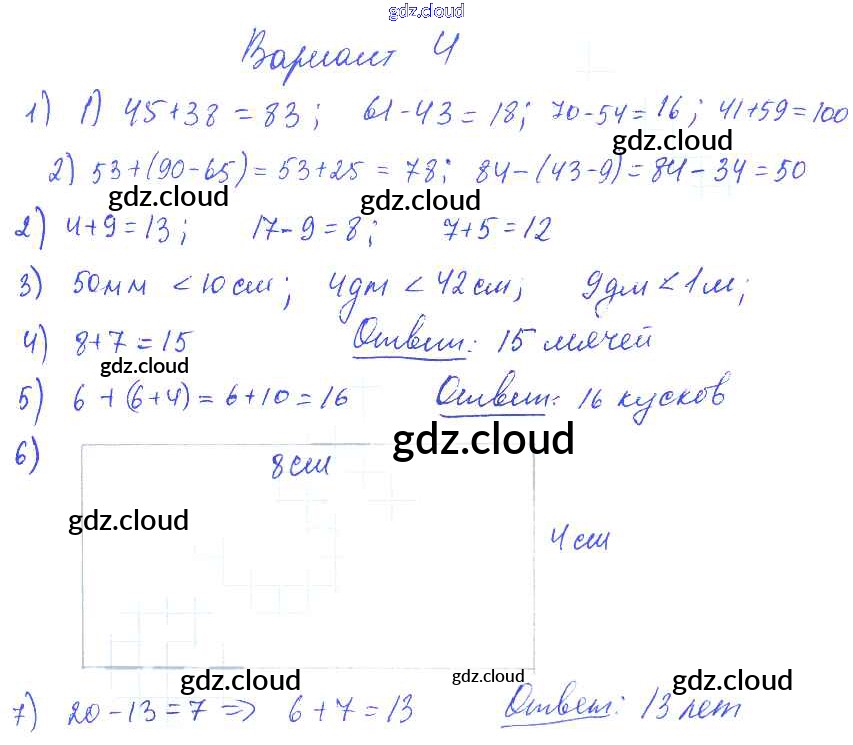 gdz.cloud
Вариант 4
1) 1) 45+38=83; 61-43=18; 70-54=16; 41+59=100
gdz.cloud
2) 53+(90-65)=53+25=78; 84-(43-9)=84-34=50
gdz.cloud gdz.cloud
2) 4+9=13; 17-9=8; 7+5=12
3) 50мм <10см; 4дм < 42см; 9дм <1м;
4) 8+7=15 Ответ: 15 мячей
gdz.cloud
5) 6+(6+4)=6+10=16 Ответ: 16 кусков
gdz.cloud
6) 8см
gdz.cloud
4см
gdz.cloud gdz.cloud gdz.cloud
7) 20-13=7 => 6+7=13 Ответ: 13 лет